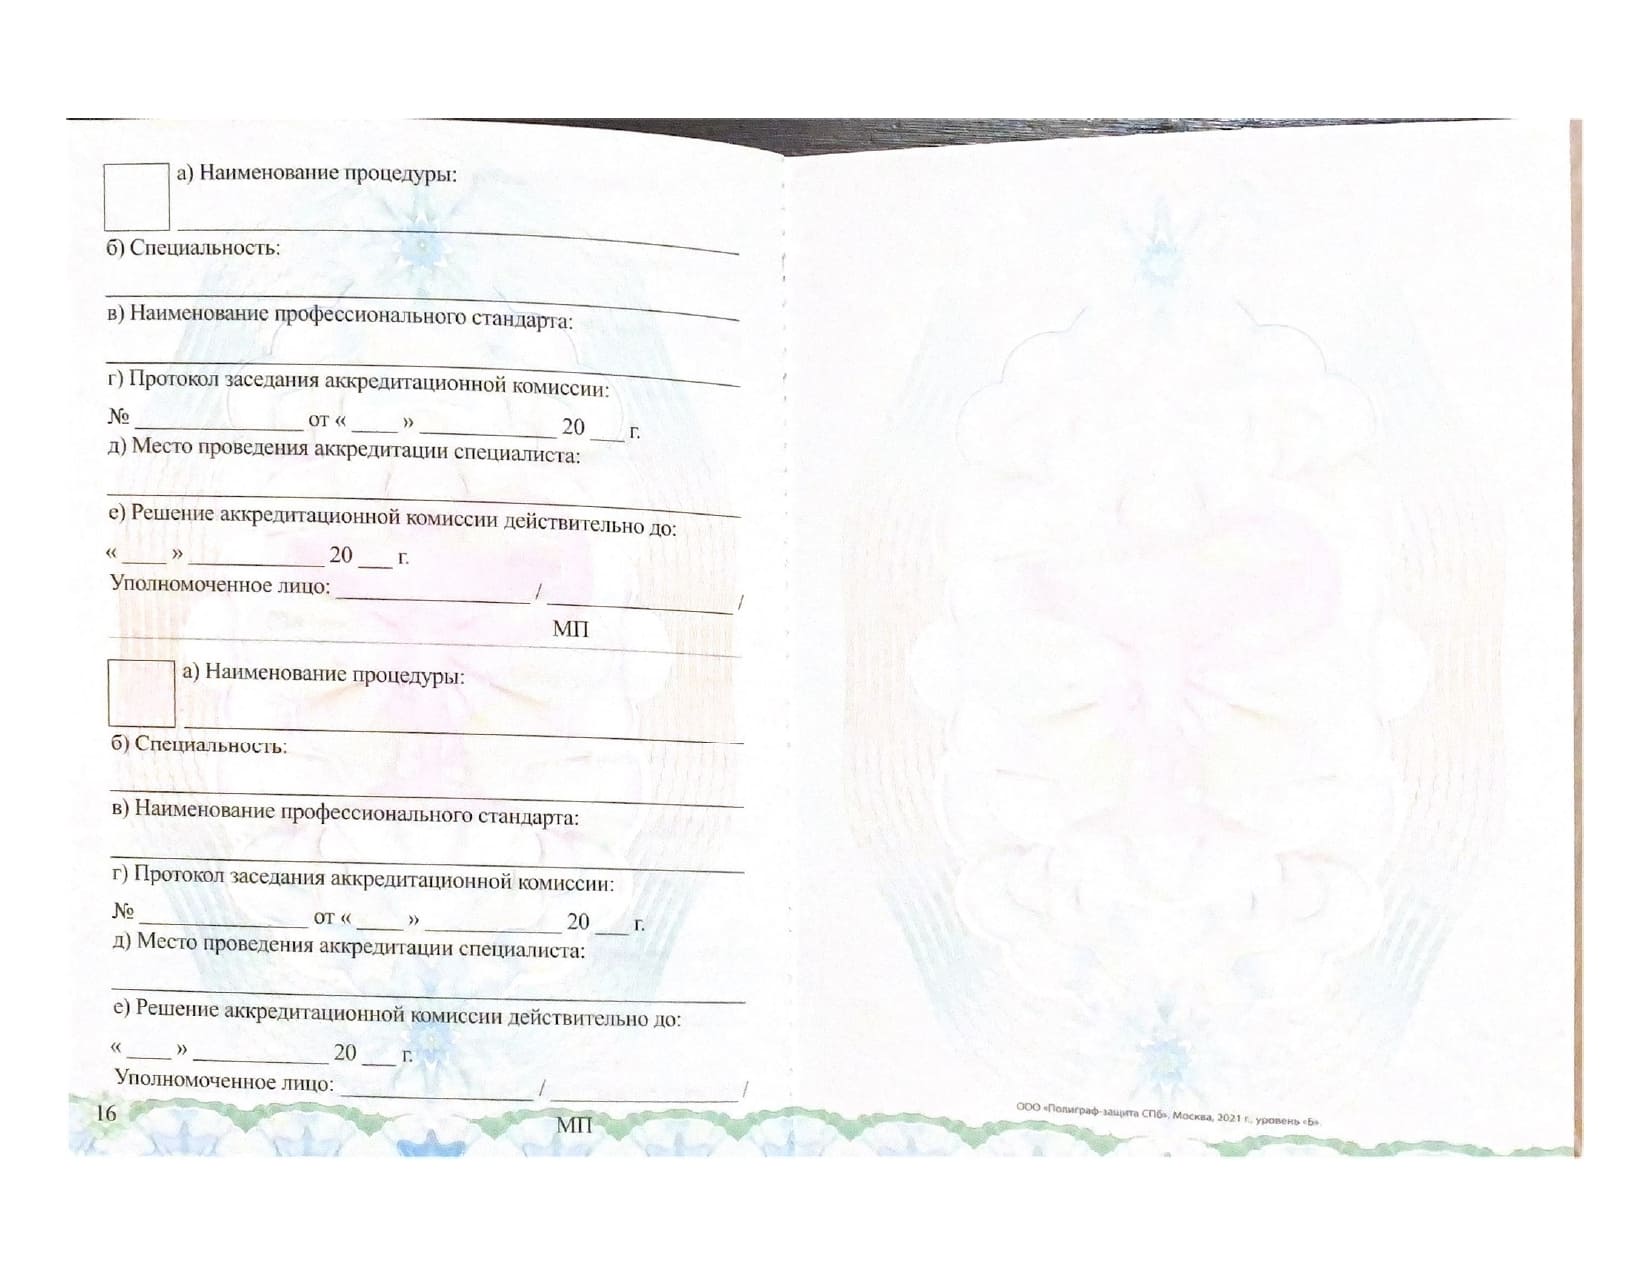 а) Наименование процедуры:
б) Специальность:
в) Наименование профессионального стандарта:
г) Протокол заседания аккредитационной комиссии:
№ ______________ от « ____ » ____________ 20 ___ г.
д) Место проведения аккредитации специалиста:
е) Решение аккредитационной комиссии действительно до:
« ____ » ____________ 20 ___ г.
Уполномоченное лицо: _________________ / _________________ /
МП
а) Наименование процедуры:
б) Специальность:
в) Наименование профессионального стандарта:
г) Протокол заседания аккредитационной комиссии:
№ ______________ от « ____ » ____________ 20 ___ г.
д) Место проведения аккредитации специалиста:
е) Решение аккредитационной комиссии действительно до:
« ____ » ____________ 20 ___ г.
Уполномоченное лицо: _________________ / _________________ /
16
МП
ООО «Полиграф-защита СПб», Москва, 2021 г., уровень «Б».